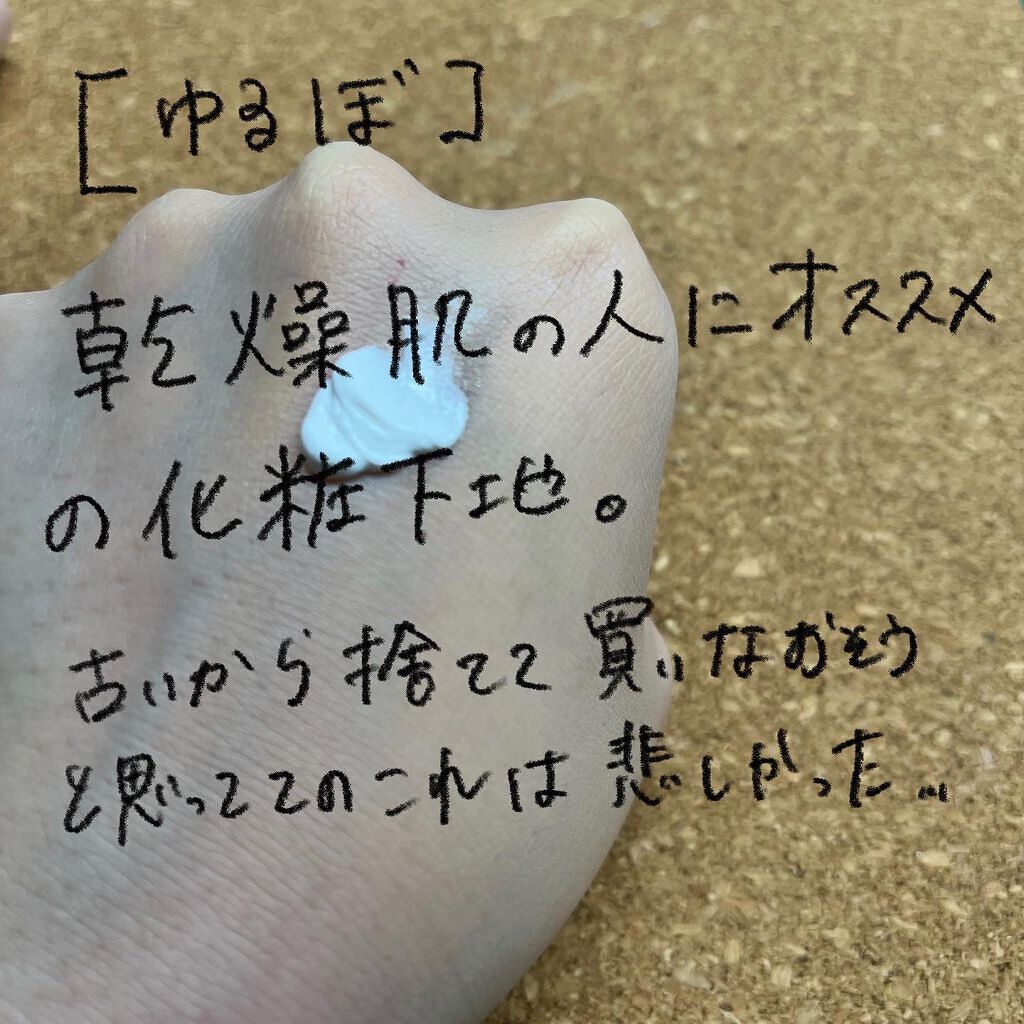 [ゆるぼ]
乾燥肌の人にオススメ
の化粧下地。
古いから捨てて買いなおそう
と思っててのこれは悲しかった...